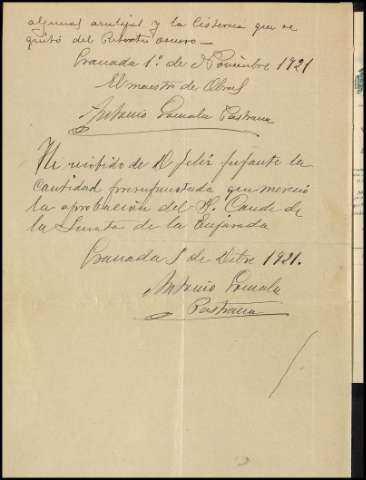 algunas azulejos y la Cisterna que se
quitó del Retrete oscuro—
Granada 1º de Noviembre 1921
El maestro de Obras
Antonio Pastrana
He recibido de D. Felix Infante la
cantidad presupuestada que mereció
la aprobación del Sr. Conde de
la de la
Granada 8 de 1921.
Antonio
Pastrana